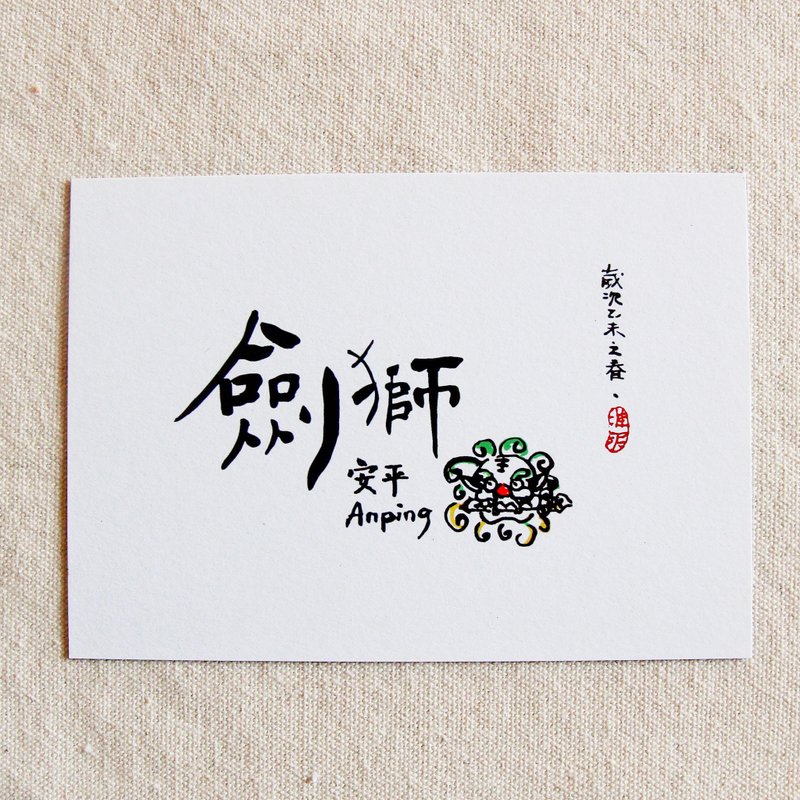 劍獅
安平
Anping
歲次乙未之春.